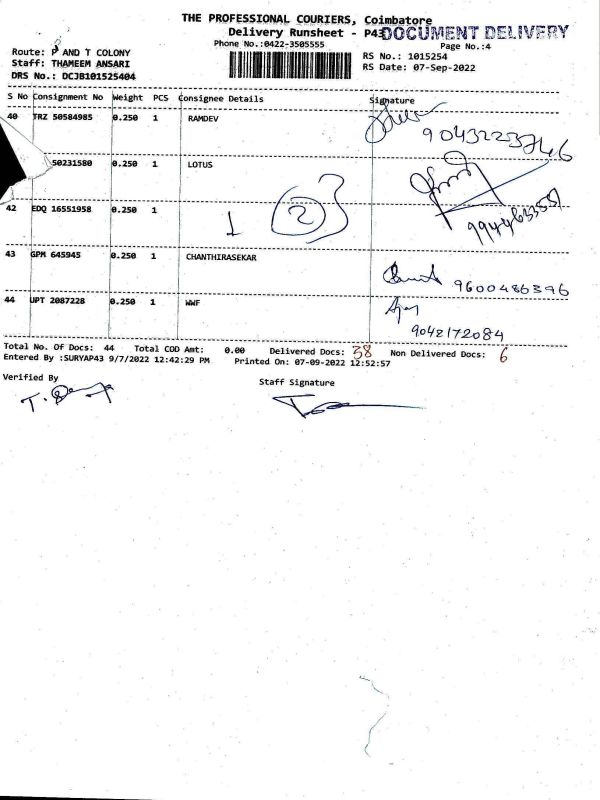 THE PROFESSIONAL COURIERS, Coimbatore
Delivery Runsheet - P43
DOCUMENT DELIVERY
Phone No.:0422-3505555
Page No.:4
Route: P AND T COLONY
RS No.: 1015254
Staff: THAMEEM ANSARI
RS Date: 07-Sep-2022
DRS No.: DCJB101525404
S No Consignment No Weight PCS Consignee Details Signature
40 TRZ 50584985 0.250 1 RAMDEV
50231580 0.250 1 LOTUS
42 EDQ 16551958 0.250 1
1 2
43 GPM 645945 0.250 1 CHANTHIRASEKAR
9600486396
44 UPT 2087228 0.250 1 WWF
9042172084
Total No. Of Docs: 44 Total COD Amt: 0.00 Delivered Docs: 38 Non Delivered Docs: 6
Entered By :SURYAP43 9/7/2022 12:42:29 PM Printed On: 07-09-2022 12:52:57
Verified By
Staff Signature